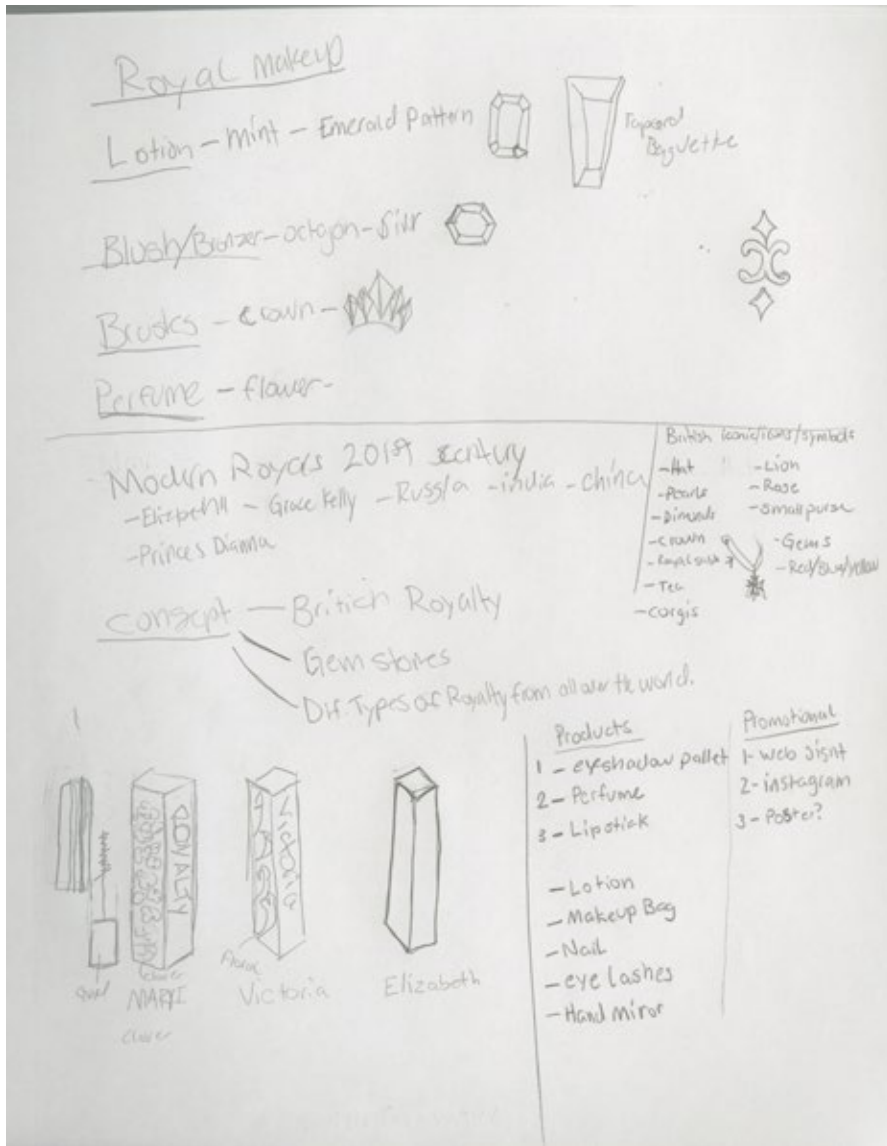 Royal Makeup
Lotion - mint - Emerald Pattern
Tapered
Baguette
Blush/Bronzer - octagon -
Brushs - crown -
Perfume - flower -
Modern Royals 201st century
- Elizbeth II - Grace Kelly - Russia - india - China
- Princes Dianna
British iconic/icons/symbols
- Hat
- Pearls
- Dimonds
- crown
- Royal sash
- Tea
- corgis
- Lion
- Rose
- Small purse
- Gems
- Red/Blue/yellow
Consept - British Royalty
Gem stones
Dif. Types of Royalty from all over the world.
1
ROYALTY
clover
MARY I
clover
Victoria
Floral
Victoria
Elizabeth
Products
1 - eyeshadow pallet
2 - Perfume
3 - Lipstick
- Lotion
- Makeup Bag
- Nail
- eye lashes
- Hand miror
Promotional
1 - web
2 - instagram
3 - Poster?